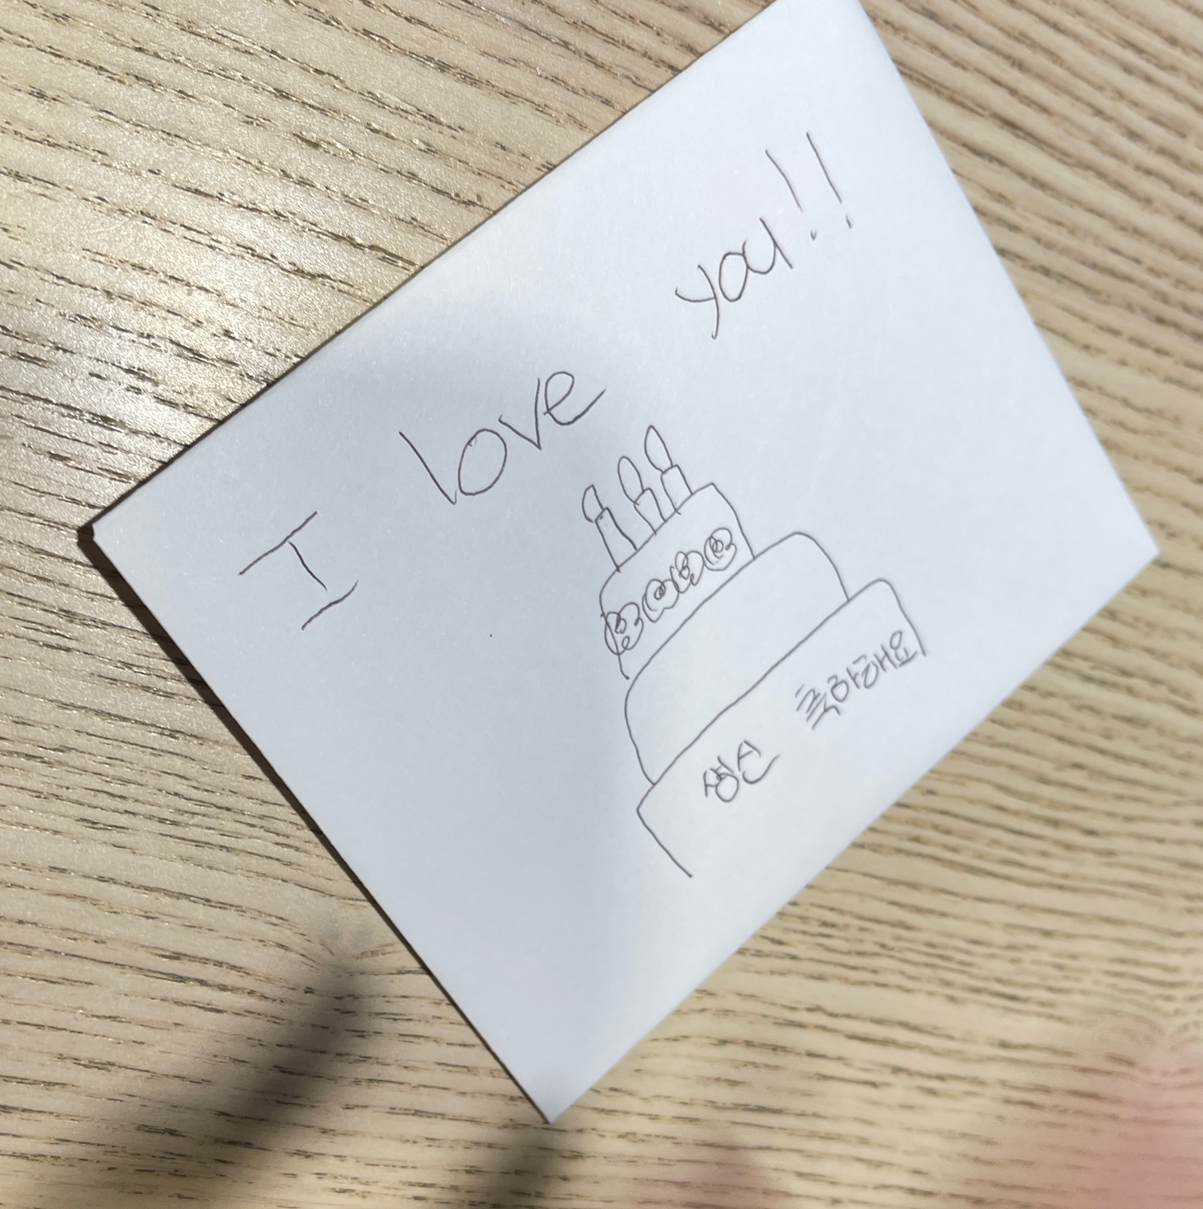 I love you!!
생신 축하해요